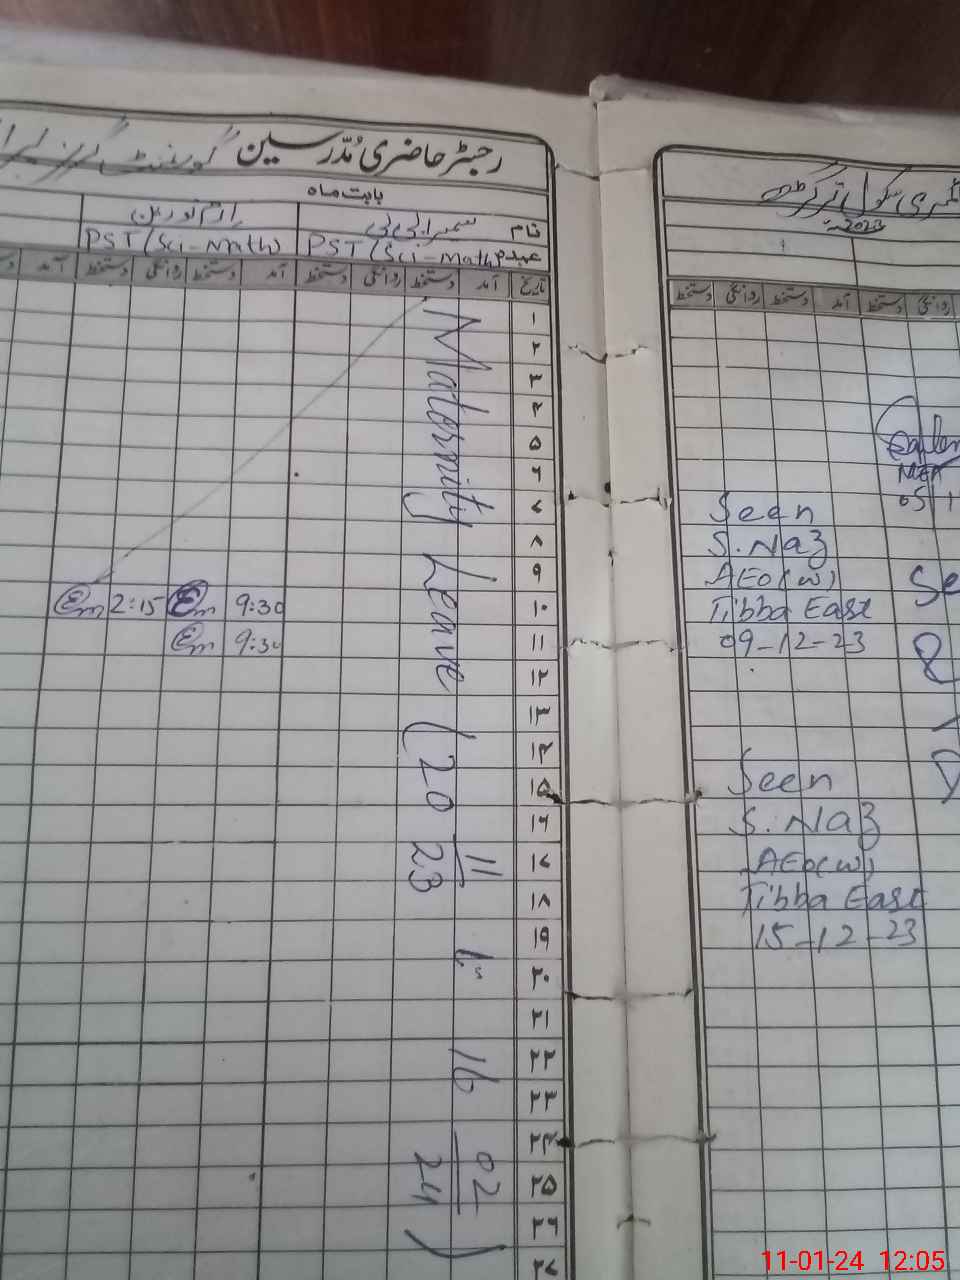 رجسٹر حاضری مُدّرسین گورنمنٹ گرلز
بابت ماہ
نام
عہدہ PST (Sci-Math) PST (Sci-Math)
تاریخ آمد دستخط روانگی دستخط آمد دستخط روانگی دستخط آمد
۱
۲
۳
۴
۵
۶
۷
۸
۹
۱۰ 9:30 Em 2:15 Em
۱۱ 9:30 Em
۱۲
۱۳
۱۴
۱۵
۱۶
۱۷
۱۸
۱۹
۲۰
۲۱
۲۲
۲۳
۲۴
۲۵
۲۶
۲۷
Maternity Leave (20 11/23 to 16 02/24)
2023
روانگی دستخط آمد دستخط روانگی دستخط
Seen
S. Naz
AEO(W)
Tibba East
09-12-23
Seen
S. Naz
AEO(W)
Tibba East
15-12-23
MEA
11-01-24 12:05